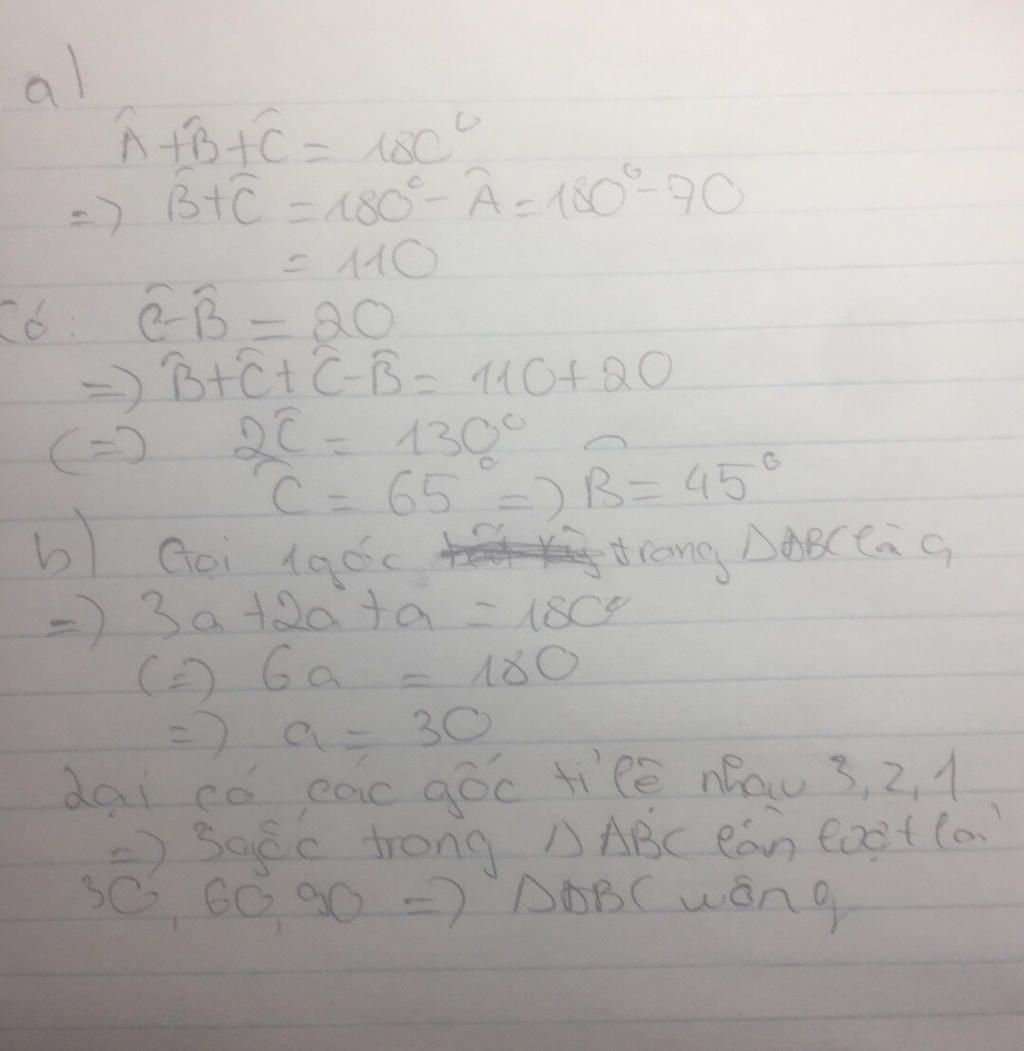 a)
Â + B̂ + Ĉ = 180°
=> B̂ + Ĉ = 180° - Â = 180° - 70
= 110
Có: Ĉ - B̂ = 20
=> B̂ + Ĉ + Ĉ - B̂ = 110 + 20
(=) 2Ĉ = 130°
Ĉ = 65° => B̂ = 45°
b) Gọi 1 góc trong ΔABC là a
=> 3a + 2a + a = 180°
(=) 6a = 180
=> a = 30
Lại có các góc tỉ lệ nhau 3, 2, 1
=> 3 góc trong ΔABC lần lượt là
30, 60, 90 => ΔABC vuông